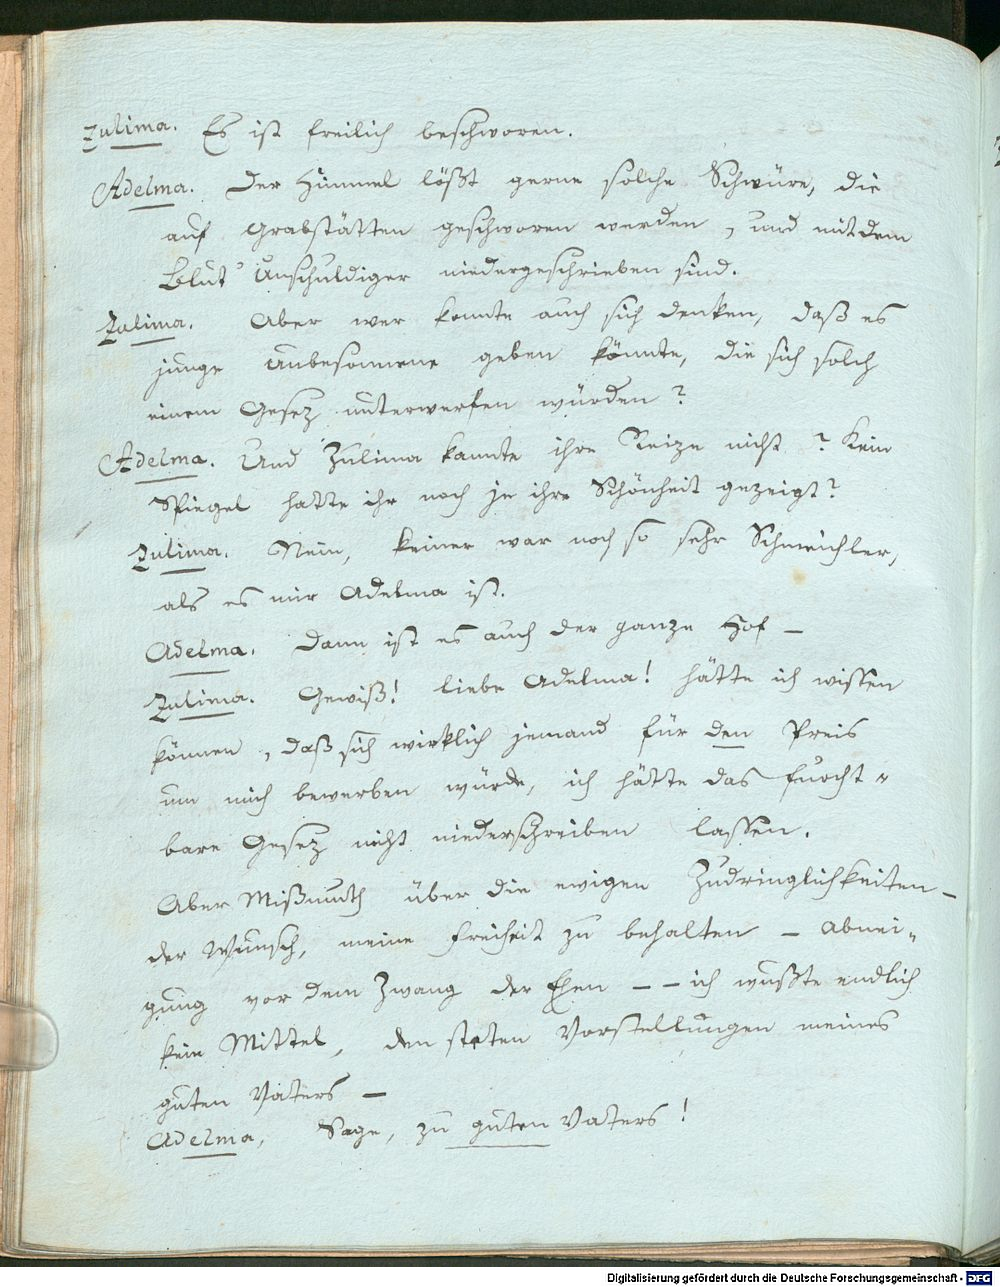 Zulima. Es ist freilich beschworen.
Adelma. Der Himmel lößt gerne solche Schwüre, die
auf Grabstätten geschworen werden, und mit dem
Blut Unschuldiger niedergeschrieben sind.
Zulima. Aber wer konnte auch sich denken, daß es
junge Unbesonnene geben könnte, die sich solch
einem Gesez unterwerfen würden?
Adelma. Und Zulima kannte ihre Reize nicht? Kein
Spiegel hatte ihr noch je ihre Schönheit gezeigt?
Zulima. Nein, keiner war noch so sehr Schmeichler,
als es mir Adelma ist.
Adelma. Dann ist es auch der ganze Hof –
Zulima. Gewiß! liebe Adelma! hätte ich wissen
können, daß sich wirklich jemand für den Preis
um mich bewerben würde, ich hätte das furcht-
bare Gesez nicht niederschreiben lassen.
Aber Mißmuth über die ewigen Zudringlichkeiten –
der Wunsch, meine Freiheit zu behalten – Abnei-
gung vor dem Zwang der Ehen – – ich wußte endlich
kein Mittel, den steten Vorstellungen meines
guten Vaters –
Adelma. Sage, zu guten Vaters!
Digitalisierung gefördert durch die Deutsche Forschungsgemeinschaft - DFG